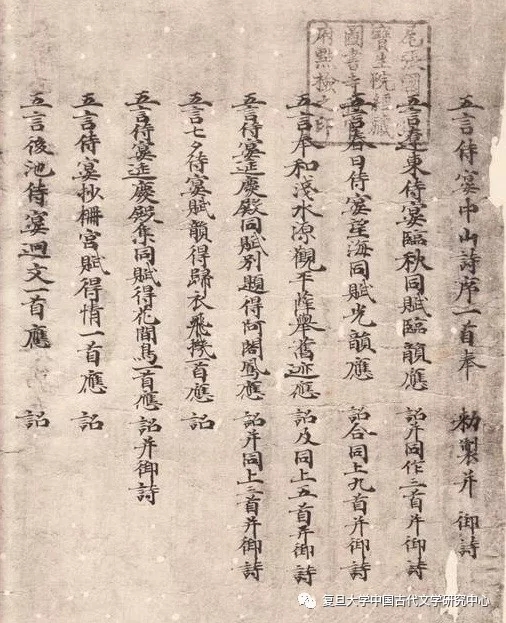 五言侍宴中山詩序一首奉 勅製并 御詩
五言遼東侍宴臨秋同賦臨韻應 詔并同作三首并御詩
五言春日侍宴望海同賦光韻應 詔合同上九首并御詩
五言奉和淺水源觀平薛舉舊迹應 詔及同上五首并御詩
五言侍宴延慶殿同賦別題得阿閣鳳應 詔并同上三首并御詩
五言七夕侍宴賦韻得歸衣飛機一首應 詔
五言侍宴延慶殿集同賦得花間鳥一首應 詔并御詩
五言侍宴抄柵宮賦得情一首應 詔
五言後池侍宴迴文一首應 詔
尾張國
寶生院經藏
圖書寺
府點檢之印
复旦大学中国古代文学研究中心